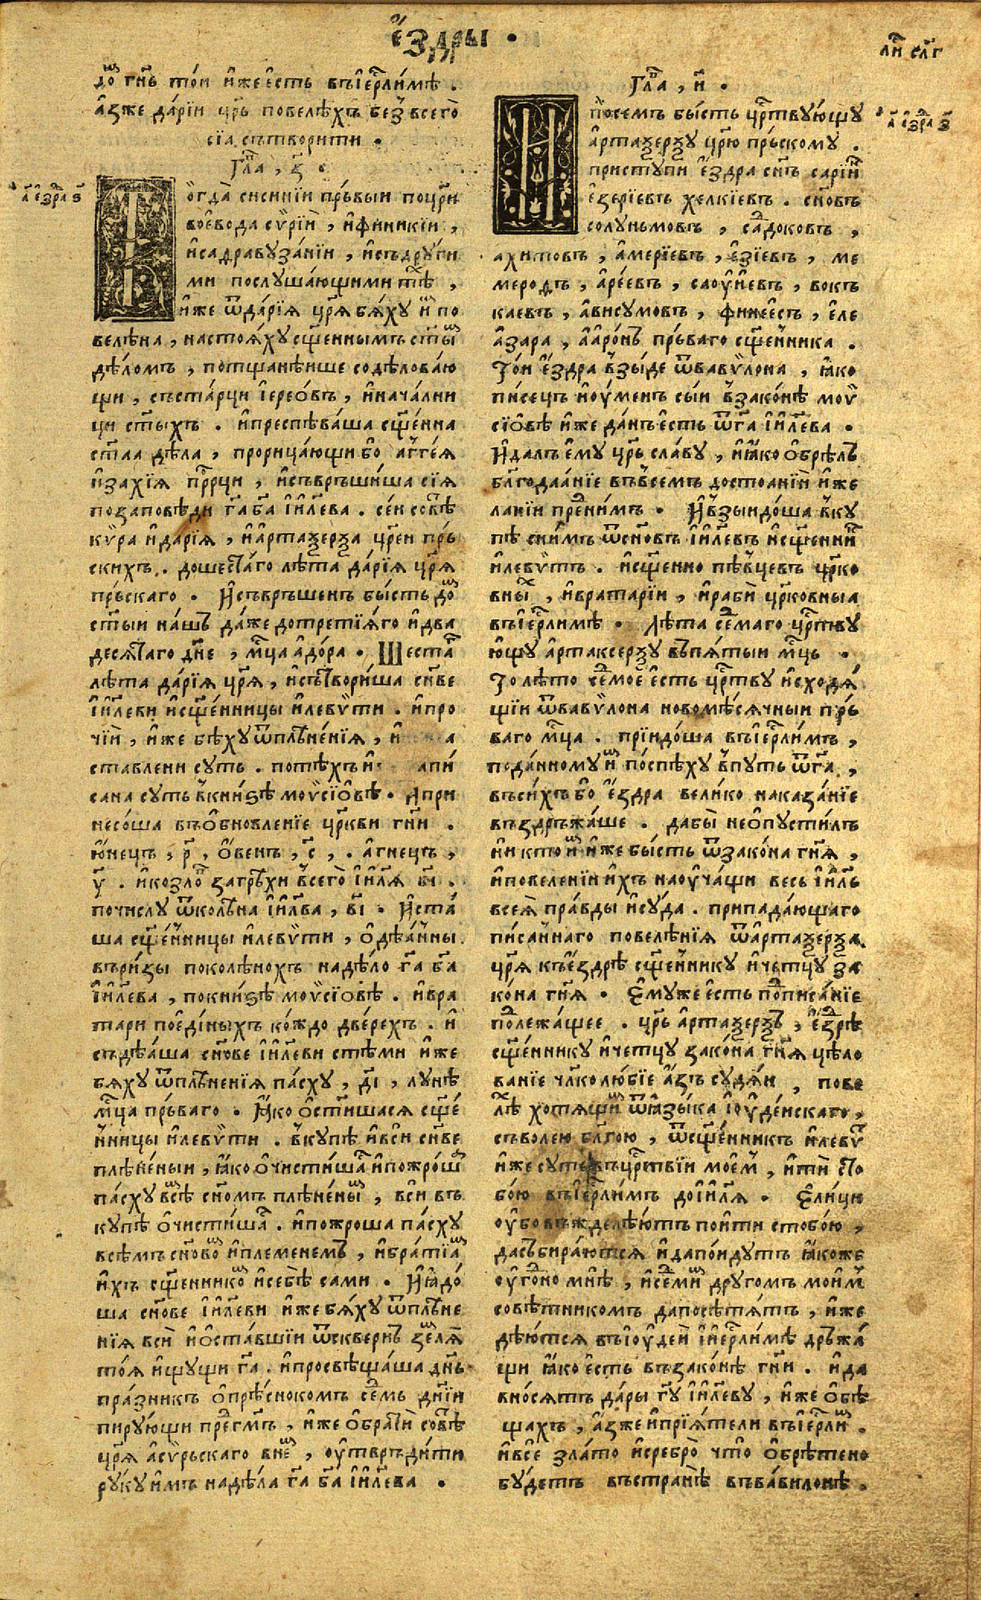 є҆́здры
до́ гн҃ь то́и и҆́же є҆́сть въ і҆єр҃ли́мѣ .
а҆́зже да́рїи цр҃ь повелѣ́хъ без̾ всего̀
сїа̀ сътвори́ти .
Гла҃ , з҃ .
огда̀ сиси́нїи пръ́выи по цр҃и
воєво́да сѵ́рїи , и҆ финики́и ,
и҆ садравуза́нїи , и҆ съ други́
ми послу́шающими тѣ́ ,
и҆́же ѿ да́рїѧ цр҃ѧ бѧ́ху и҆м по
велѣ́на , настоѧ́ху сщ҃е́ннымъ ст҃ы́
дѣ́ломъ , потщанѣ́ише содѣ́ловаю
щи , съ ста́рци і҆єре́овъ , и҆ нача́лни
ци ст҃ы́хъ . и҆ преспѣва́ша сщ҃е́нна
ст҃аа дѣ́ла , прорица́ющи бо а҆ггеѧ
и҆ заха́рїѧ пр҃рци , и҆ съвръши́ша сїѧ̀
по за́повѣди гд҃а бг҃а і҆и҃лева . се́и совѣ
кѵ́ра и҆ да́рїѧ , и҆ а҆ртаѯе́рѯа цр҃еи пръ́
скихъ . до шестаго лѣ́та да́рїѧ цр҃ѧ
пръ́скаго . И҆ съвръше́нъ бы́сть до́
ст҃ыи нашъ да́же до третїѧ́го и҆ два
десѧтаго дн҃е , мц҃а а҆до́ра . Шестаг
лѣ́та да́рїѧ цр҃ѧ , и҆ сътвори́ша сн҃ве
і҆и҃леви и҆ сщ҃е́нницы и҆ левѵ́ти . и҆ про
чїи , и҆́же бѣ́ху ѿ плѣне́нїѧ , и҆ а
ставлени суть . по тѣ́хъ и҆ апи́
сана суть въ кни́ѕѣ моѵсїо́вѣ . А прин
несо́ша въ о҆бновле́нїе цр҃кви гн҃и .
ю҆нець , р҃ , о҆́венъ , с҃ , . а҆гнець ,
у҃ . и҆ козло́ за грѣхи всего̀ і҆и҃лѧ ві҃ .
по числу̀ ѿ колѣна і҆и҃лва , ві҃ . И҆ ста́
ша сщ҃е́нницы и҆ левѵ́ти , о҆дѣ́анны
въ ри́зы по колѣ́нохъ на дѣ́ло гд҃а бг҃а
і҆и҃лева , по кни́ѕѣ моѵсїо́вѣ . и҆ вра
тари по є҆ди́ныхъ ко́ждо две́рехъ . и҆
съдѣ́аша сн҃ове і҆и҃леви съ тѣ́ми и҆́же
бѧ́ху ѿ плѣне́нїѧ па́сху , ді҃ , лунѣ
мц҃а пръ́ваго . Ꙗ҆́ко о҆ст҃и́шасѧ сщ҃е́
нницы и҆ левѵ́ти . вку́пѣ и҆ вси сн҃ве
плѣне́ныи , ꙗ҆́ко о҆чи́стишасѧ и҆ пожро́ша
па́сху всѣ̀ сн҃омъ плѣне́ны , вси въ
ку́пѣ о҆чи́стишасѧ . и҆ пожроша па́сху
всѣ́мъ сн҃ово и҆ племенемъ , и҆ бра́тїѧ
и҆́хъ сщ҃е́ннико и҆ себѣ̀ сами . И҆ ꙗ҆до́
ша сн҃ове і҆и҃леви и҆́же бѧ́ху ѿ плѣне
нїѧ всѝ и҆ о҆ста́вшїи ѿ сквернъ землѧ̀
тоѧ̀ и҆́щущи гд҃а . и҆ просвѣща́ша дн҃ь
пра́зникъ о҆прѣ́снокомъ се́мь дн҃їи
пиру́ющи пре гмъ , и҆́же о҆брати́ совѣ
цр҃ѧ а҆сѵ́рьскаго в не́ , у҆твръди́ти
ру́ку и҆̀мъ на дѣ́ла гд҃а бг҃а і҆и҃лева .
ли слг
а҃ є҆здра ѕ҃
Гла҃ , и҃ .
по се́мъ бы́сть цр҃твую́щу
а҆ртаѯе́рѯу цр҃ю пръ́скому .
приступѝ є҆́здра сн҃ъ сарі́ин
є҆зерїевъ хелкїевъ . сн҃овъ
солу́нымовъ , са́доковъ ,
ахитовъ , а҆мерїевъ , є҆зїевъ , ме
меродъ , а҆ре́евъ , саоу́иевъ , вокъ
каевъ , а҆висумовъ , финее́съ , є҆ле
а҆зара , а҆аро́нъ пръ́ваго сщ҃е́нника .
То́и є҆́здра взы́де ѿ вавѵло́на , ꙗ҆́ко
пи́сець и҆ оу҆ме́нъ сы́и в зако́нѣ моѵ
сїо́вѣ и҆́же да́нъ є҆сть ѿ гд҃а і҆и҃лева .
И҆ далъ є҆му̀ цр҃ь сла́ву , и҆ ꙗ҆́ко о҆брѣ́лъ
бл҃года́нїе въ все́мъ достоа́нїи и҆ же
ла́нїи пре ни́мъ . И҆ взыидо́ша вку
пѣ с ни́мъ ѿ сн҃овъ і҆и҃левъ и҆ сщ҃е́нни
и҆ левѵ́тъ . и҆ сщ҃е́нно пѣ́вцевъ цр҃ко
вны , и҆ врата́рїи , и҆ раби цр҃ко́вныа
въ і҆єр҃ли́мѣ . Лѣ́та се́маго цр҃тву
ю҆щу а҆ртаксе́рѯу въ пѧ́тыи мц҃ь .
То лѣ́то се́мое є҆сть цр҃тву и҆ сходѧ́
щїи ѿ вавѵло́на новомѣ́сѧчныи пръ́
ваго мц҃а . прїидо́ша въ і҆єр҃ли́мъ ,
по да́нному и поспѣ́ху в путь ѿ гд҃а ,
въ си́хъ бо є҆́здра вели́ко наказа́нїе
въздръжа́ше . дабы̀ не о҆пусти́лъ
ни кто и҆ и҆́же бы́сть ѿ зако́на гн҃ѧ ,
и҆ повеле́нїи и҆́хъ наоу҆ча́щи весь і҆и҃ль
всеѧ̀ пра́вды и҆ су́да . припада́ющаго
писа́ннаго повелѣ́нїѧ ѿ а҆ртаѯе́рѯа
цр҃ѧ къ є҆́здрѣ сщ҃е́ннику и҆ четцу̀ за
ко́на гн҃ѧ . Є҆му́же є҆сть по писа́нїе
по лежа́щее . цр҃ь а҆ртаѯе́рѯъ , є҆́зрѣ
сщ҃е́ннику и҆ четцу зако́на гн҃ѧ цѣло
ва́нїе чл҃колю́бїе а҆́зъ судѧ́и , пове
лѣ̀ хотѧ́щи ѿ ꙗ҆зы́ка і҆оуде́искаго ,
съ во́лею бл҃го́ю , ѿ сщ҃е́нникъ и҆ левѵ
и҆́же суть въ цр҃твїи мое́мъ , и҆тѝ сто
бо́ю въ і҆єр҃ли́мъ до і҆и҃лѧ . Є҆ли́ци
оу҆бо въжделѣ́ютъ пои́ти стобо́ю ,
да събира́ютсѧ и҆ да по́идутъ ꙗ҆́коже
оу҆го́но мнѣ̀ , и҆ се́ми другомъ мои́мъ
совѣ́тникомъ да посѣтѧ́тъ , и҆́же
дѣ́ютсѧ въ і҆оуде́и і҆ и҆єр҃ли́мѣ дръжа́
щи ꙗ҆́ко є҆сть въ зако́нѣ гн҃и . и҆ да
вно́сѧтъ да́ры гд҃у і҆и҃леву , и҆́же о҆бѣ
щахъ , а҆́зже и҆ прїѧ́тели въ і҆єр҃ли .
и҆ все зла́то и҆ сребро̀ что о҆брѣ́тено
бу́детъ въ странѣ̀ въ ва́вилонѣ .
а҃ є҆здра ѕ҃